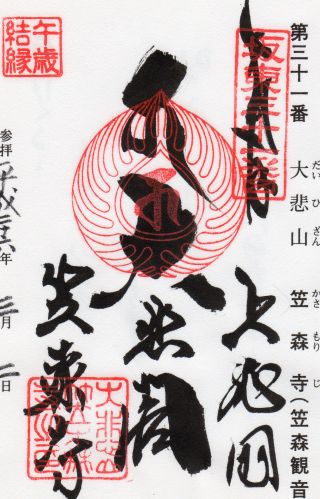 奉拝
坂東三十一番
第三十一番 大悲山 笠森寺(笠森観音
だい ひ ざん かさ もり じ
上総国
大悲閣
笠森寺
大悲山
午歳
結縁
参拝 平成二六年 三月 二日